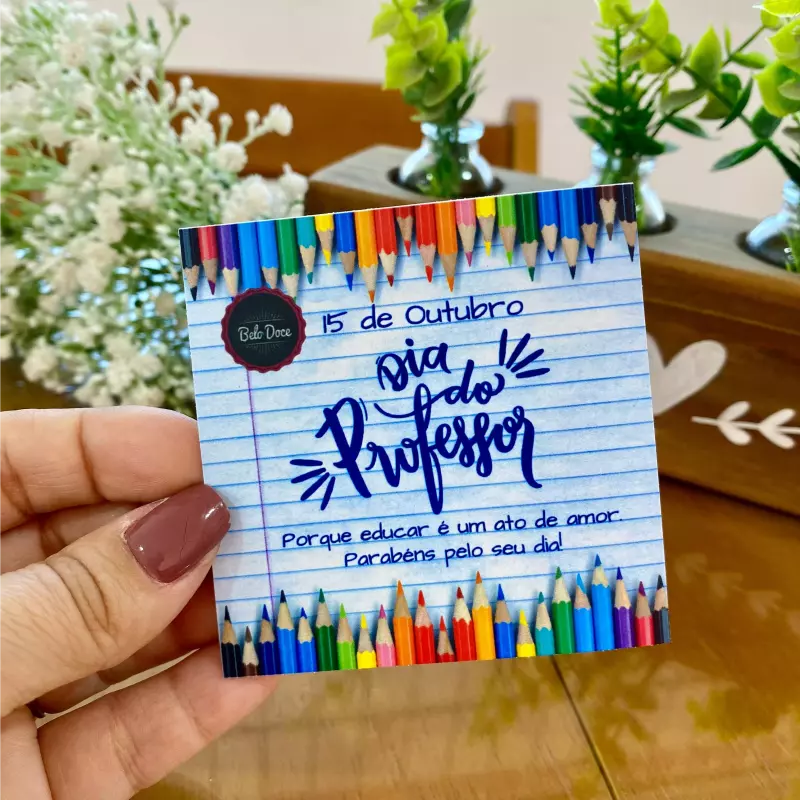 Belo Doce
15 de Outubro
Dia
do
Professor
Porque educar é um ato de amor.
Parabéns pelo seu dia!